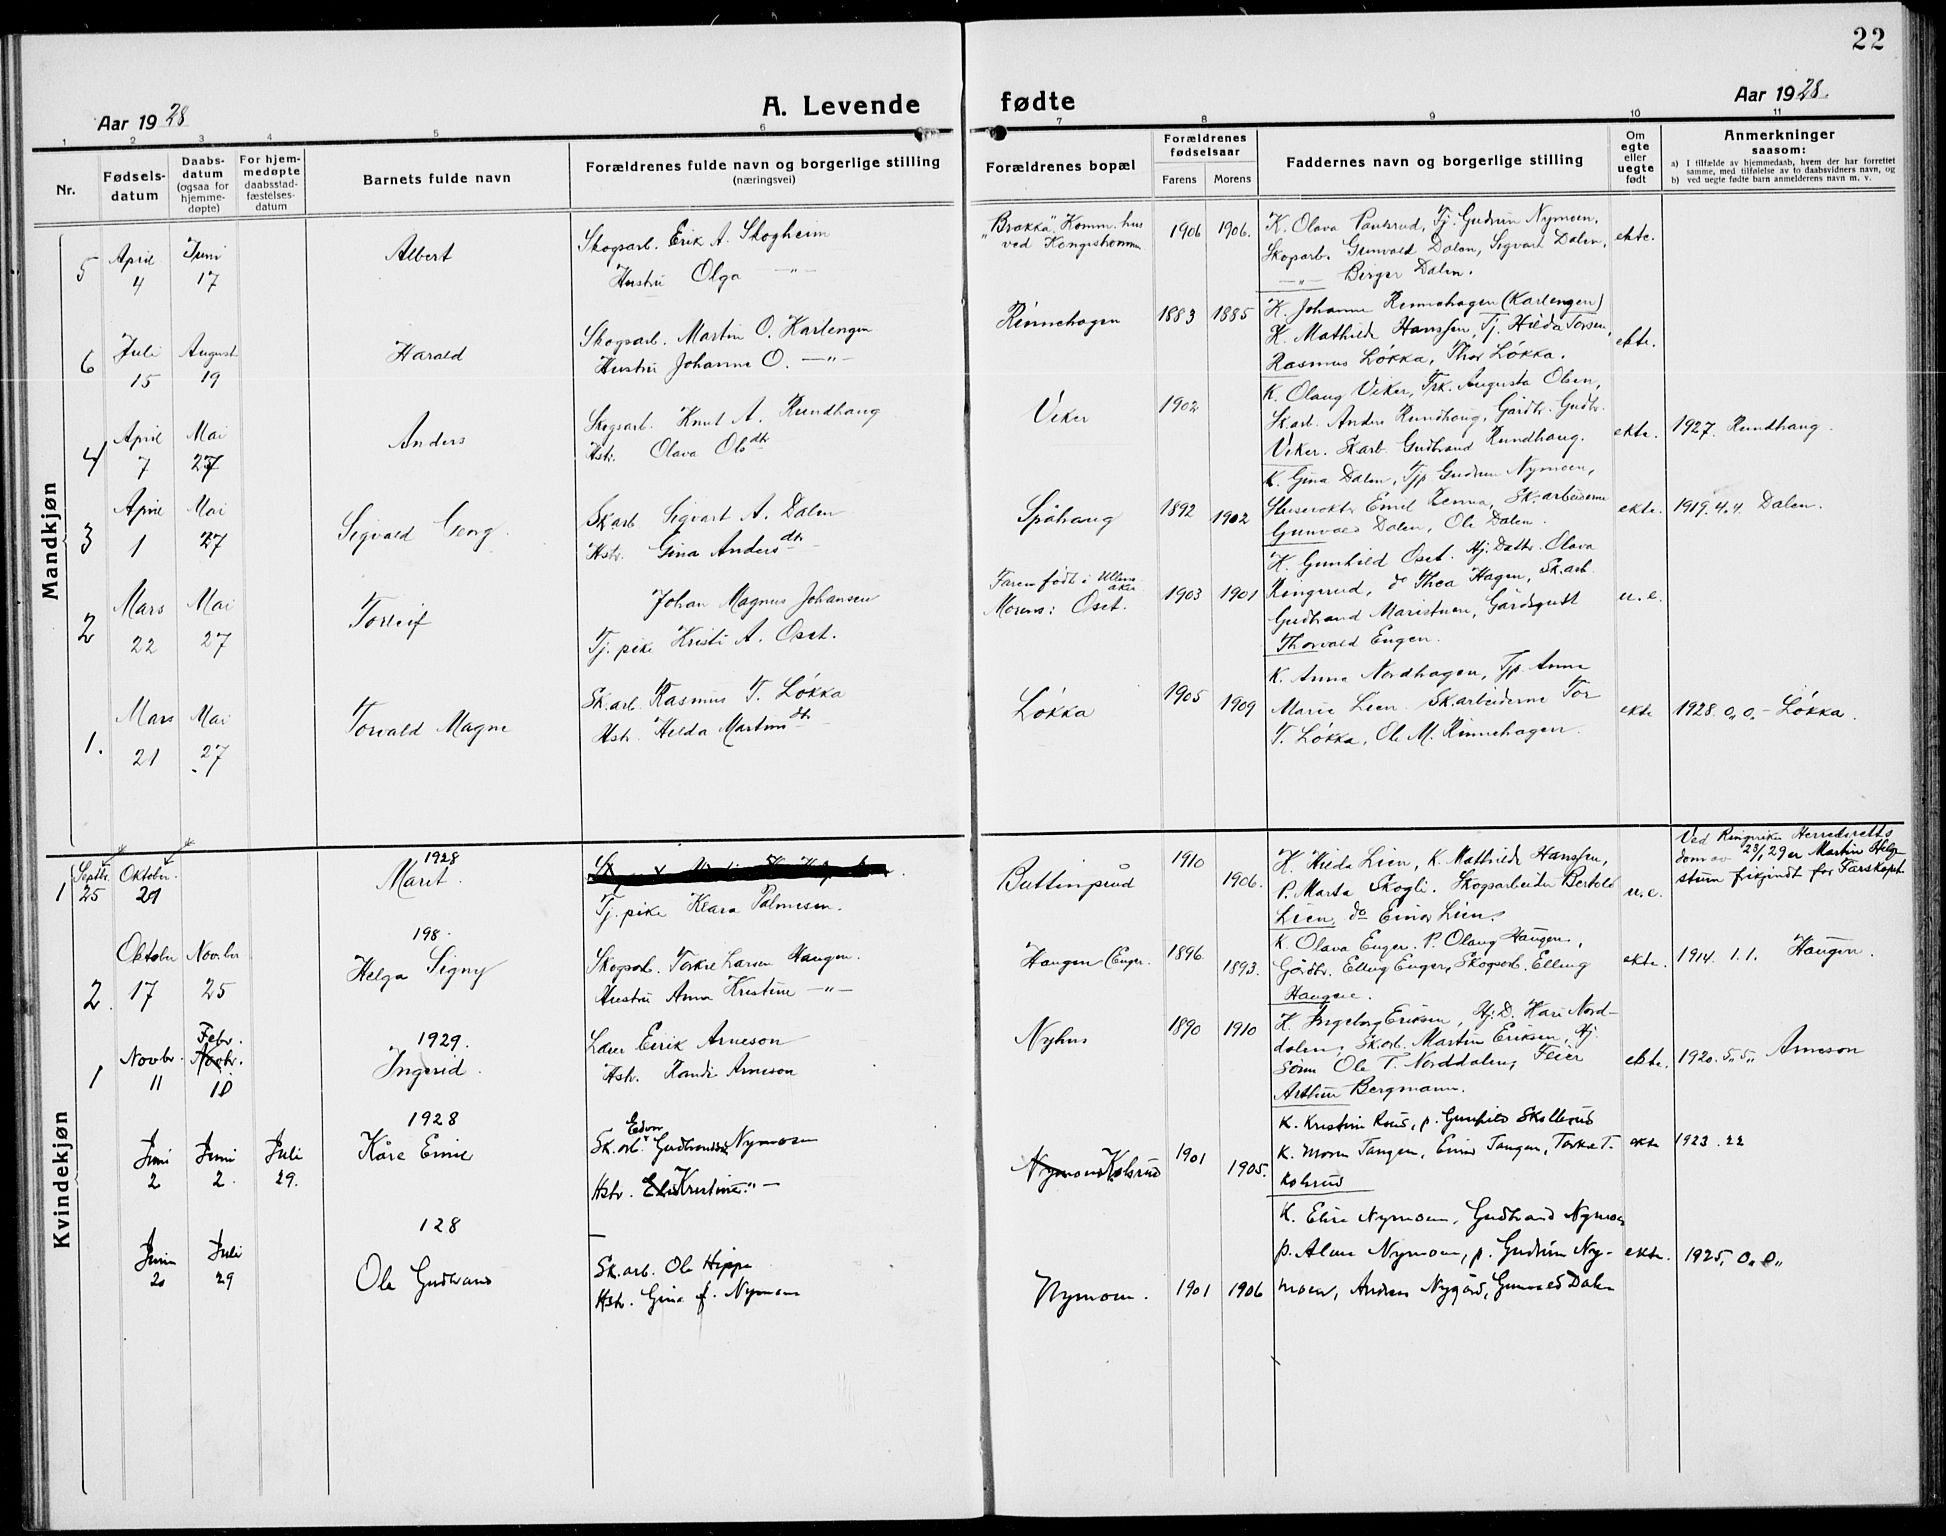 22
Aar 1928
A. Levende fødte
Aar 1928.
1 2 3 4 5 6 7 8 9 10 11
Nr.
Fødsels-
datum
Daabs-
datum
(ogsaa for
hjemme-
døpte)
For hjem-
medøpte
daabsstad-
fæstelses-
datum
Barnets fulde navn
Forældrenes fulde navn og borgerlige stilling
(næringsvei)
Forældrenes bopæl
Forældrenes
fødselsaar
Farens Morens
Faddernes navn og borgerlige stilling
Om
egte
eller
uegte
født
Anmerkninger
saasom:
a) I tilfælde av hjemmedaab, hvem der har forrettet
samme, med tilføielse av to daabsvidners navn, og
b) ved uegte fødte barn anmelderens navn m. v.
Mandkjøn
5 April 4 Juni 17
Albert
Skogsarb. Erik A. Skogheim
Hustru Olga —"—
"Brakka", Komm. hus
ved
1906 1906.
K. Olava Paulsrud, Tj. Gudrun Nymoen,
Skogarb. Gunvald Dalen, Sigvart Dalen,
—"— Birger Dalen.
ekte.
6 Juli 15 August 19
Harald
Skogsarb. Martin O. Karlengen
Hustru Johanne O. —"—
Rinnehagen
1883 1885
K. Johanne Rinnehagen (Karlengen)
K. Mathilde Hanssen, Tj. Hilda Torsen,
Rasmus Løkka, Thor Løkka.
ekte.
4 April 7 Mai 27
Anders
Skogsarb. Knut A. Rundhaug
Hstr. Olava Olsdtr
Viker
1902
K. Olaug Viker, Frk. Augusta Olsen,
Sk.arb. Anders Rundhaug, Gårdbr. Gudbr.
Viker. Sk.arb. Gudbrand Rundhaug.
ekte.
1927. Rundhaug.
3 April 1 Mai 27
Sigvald Georg
Sk.arb Sigvart A. Dalen
Hstr. Gina Andersdtr
Spåhaug
1892 1902
K. Gina Dalen, Tjp Gudrun Nymoen,
Emil Renna, Sk.arbeiderne
Gunvald Dalen, Ole Dalen.
ekte.
1919. 4.4. Dalen.
2 Mars 22 Mai 27
Torleif
Johan Magnus Johansen
Tj. pike Kristi A. Oset.
Faren født i Ullens
aker
Morens: Oset.
1903 1901
K. Gunhild Oset. Hj. Dattr. Olava
Ringerud, do Thea Hagen, Sk.arb.
Gudbrand Maristuen, Gårdsgutt
Thorvald Engen.
u. e.
1. Mars 21 Mai 27
Torvald Magne
Sk.arb. Rasmus T. Løkka
Hstr. Hilda Martinsdtr
Løkka
1905 1909
K. Anna Nordhagen, Tjp Anna
Marie Lien. Sk.arbeiderne Tor
T. Løkka, Ole M. Rinnehagen.
ekte
1928. 0,.0,.- Løkka.
Kvindekjøn
1 Septbr. 25 Oktober. 21
1928
Marit.
Tj. pike Klara Palmesen.
Buttingsrud
1910 1906.
K. Hilda Lien, K. Mathilde Hanssen,
P. Marta Skogli. Skogsarbeider Bertold
Lien, do Einar Lien.
u. e.
Ved Ringerike Herredsretts
dom av 23/1 29 er Martin Helge-
stum frikjendt for Farskapet.
2 Oktober 17 Novbr. 25
198.
Helga Signy
Skogsarb. Torkel Larsen Haugen.
Hustru Anna Kristine —"—
Haugen (Enger.
1896. 1893.
K. Olava Enger. P. Olaug Haugen,
Gårdbr. Elling Enger, Skogsarb. Elling
Haugen.
ekte.
1914. 1.1. Haugen.
1 Novbr. 11 Febr. Novbr. 10
1929.
Ingerid.
Lærer Eirik Arneson
Hstr. Randi Arneson
Nyhus
1890 1910
K. Ingeborg Eriksen, Hj. D. Kari Nord-
dalen, Sk.arb. Martin Eriksen, Hj.
Sønn Ole T. Norddalen, Feier
Arthur Bergmann.
ekte.
1920. 5.,5., Arneson
Juni 2 Juni 2. Juli 29.
1928
Kåre Emil
Sk.arb. Edvin Gudbrandsen Nymoen
Hstr. Kristine —"—
Nymoen Kolsrud
1901 1905.
K. Kristine, p. Gunhild Skollerud
K. Moren Tangen, Einar Tangen, Torkel T.
Kolsrud
ekte
1923. 22
Juni 20 Juli 29
128
Ole Gudbrand
Sk.arb. Ole Hippe
Hstr. Gina f. Nymoen
Nymoen.
1901 1906
K. Elise Nymoen, Gudbrand Nymoen
p. Alma Nymoen, p. Gudrun Ny-
moen, Anders Nygård, Gunvald Dalen
ekte.
1925, 0,, 0,,